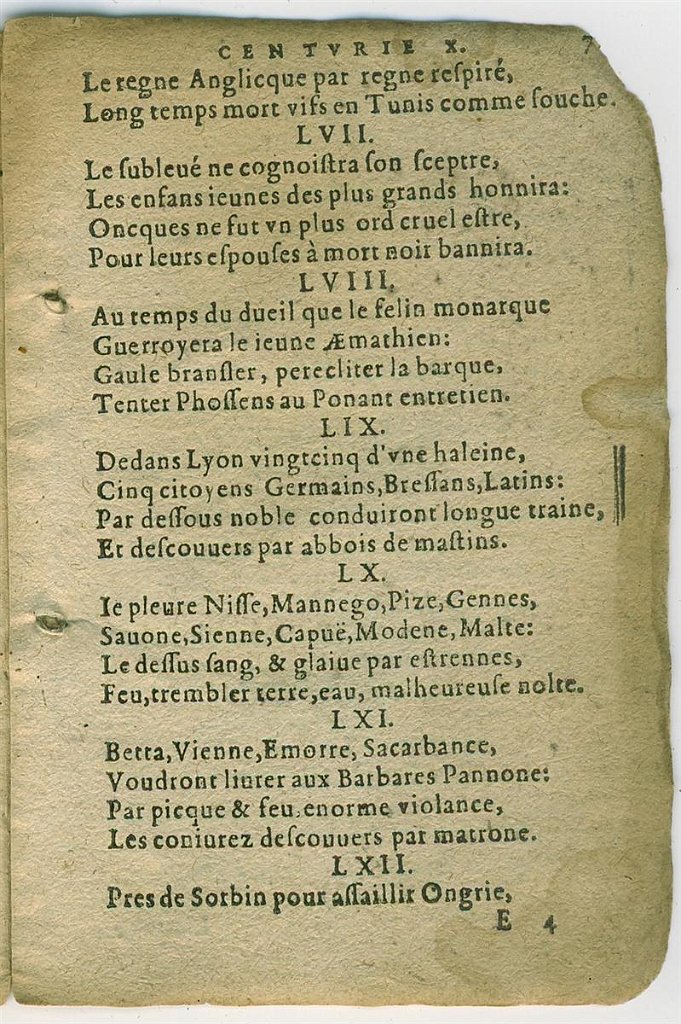 CENTVRIE X. 7
Le regne Anglicque par regne reſpiré,
Long temps mort vifs en Tunis comme ſouche.
LVII.
Le ſubleué ne cognoiſtra ſon ſceptre,
Les enfans ieunes des plus grands honnira:
Oncques ne fut vn plus ord cruel eſtre,
Pour leurs eſpouſes à mort noir bannira.
LVIII.
Au temps du dueil que le felin monarque
Guerroyera le ieune Æmathien:
Gaule branſler, perecliter la barque,
Tenter Phoſſens au Ponant entretien.
LIX.
Dedans Lyon vingtcinq d'vne haleine,
Cinq citoyens Germains,Breſſans,Latins:
Par deſſous noble conduiront longue traine,
Et deſcouuers par abbois de maſtins.
LX.
Ie pleure Niſſe,Mannego,Pize,Gennes,
Sauone,Sienne,Capuë,Modene,Malte:
Le deſſus ſang, & glaiue par eſtrennes,
Feu,trembler terre,eau, malheureuſe nolte.
LXI.
Betta,Vienne,Emorre, Sacarbance,
Voudront liurer aux Barbares Pannone:
Par picque & feu,enorme violance,
Les coniurez deſcouuers par matrone.
LXII.
Pres de Sorbin pour aſſaillir Ongrie,
E 4